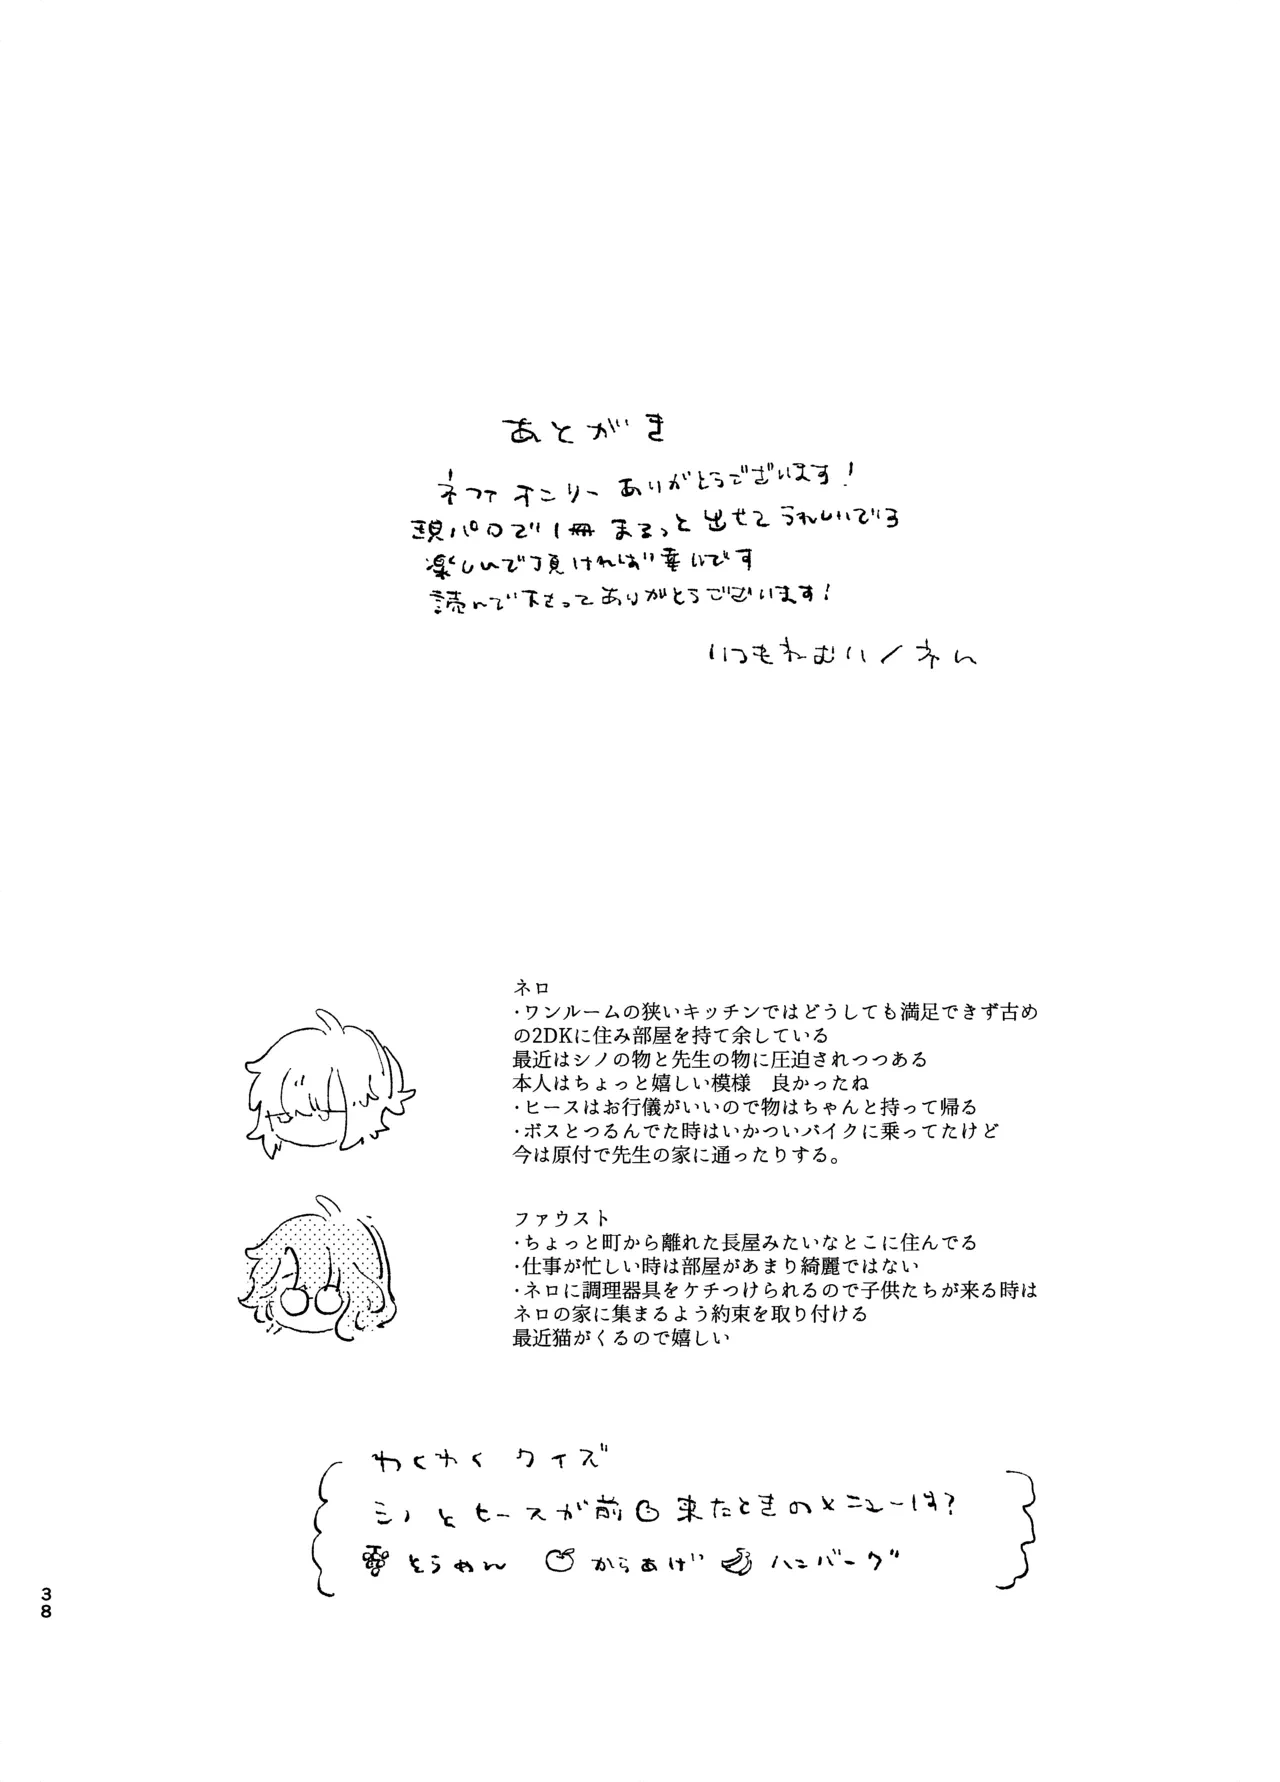 あとがき
ネファオンリーありがとうございます!
現パロで1冊まるっと出せてうれしいでいる
楽しんで頂ければ幸いです
読んで下さってありがとうございます!
いつもねむい/ネん
ネロ
・ワンルームの狭いキッチンではどうしても満足できず古め
の2DKに住み部屋を持て余している
最近はシノの物と先生の物に圧迫されつつある
本人はちょっと嬉しい模様 良かったね
・ヒースはお行儀がいいので物はちゃんと持って帰る
・ボスとつるんでた時はいかついバイクに乗ってたけど
今は原付で先生の家に通ったりする。
ファウスト
・ちょっと町から離れた長屋みたいなとこに住んでる
・仕事が忙しい時は部屋があまり綺麗ではない
・ネロに調理器具をケチつけられるので子供たちが来る時は
ネロの家に集まるよう約束を取り付ける
最近猫がくるので嬉しい
わくわく クイズ
シノとヒースが前回来たときのメニューは?
とうめん からあげ ハンバーグ
38